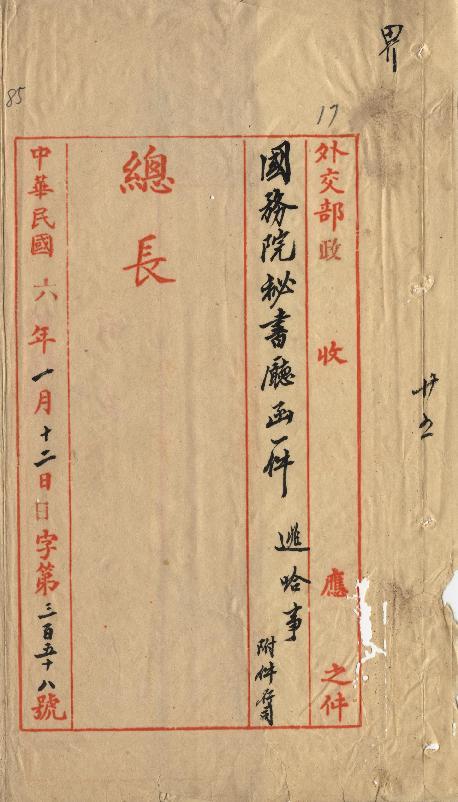 界
廿五
17
85
外交部政 收 應 之件
國務院秘書廳函一件 進哈事
附件存司
總長
中華民國六年一月十二日日字第三百五十八號